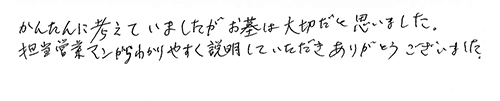 かんたんに考えていましたがお墓は大切だと思いました。
担当営業マンからわかりやすく説明していただきありがとうございました。